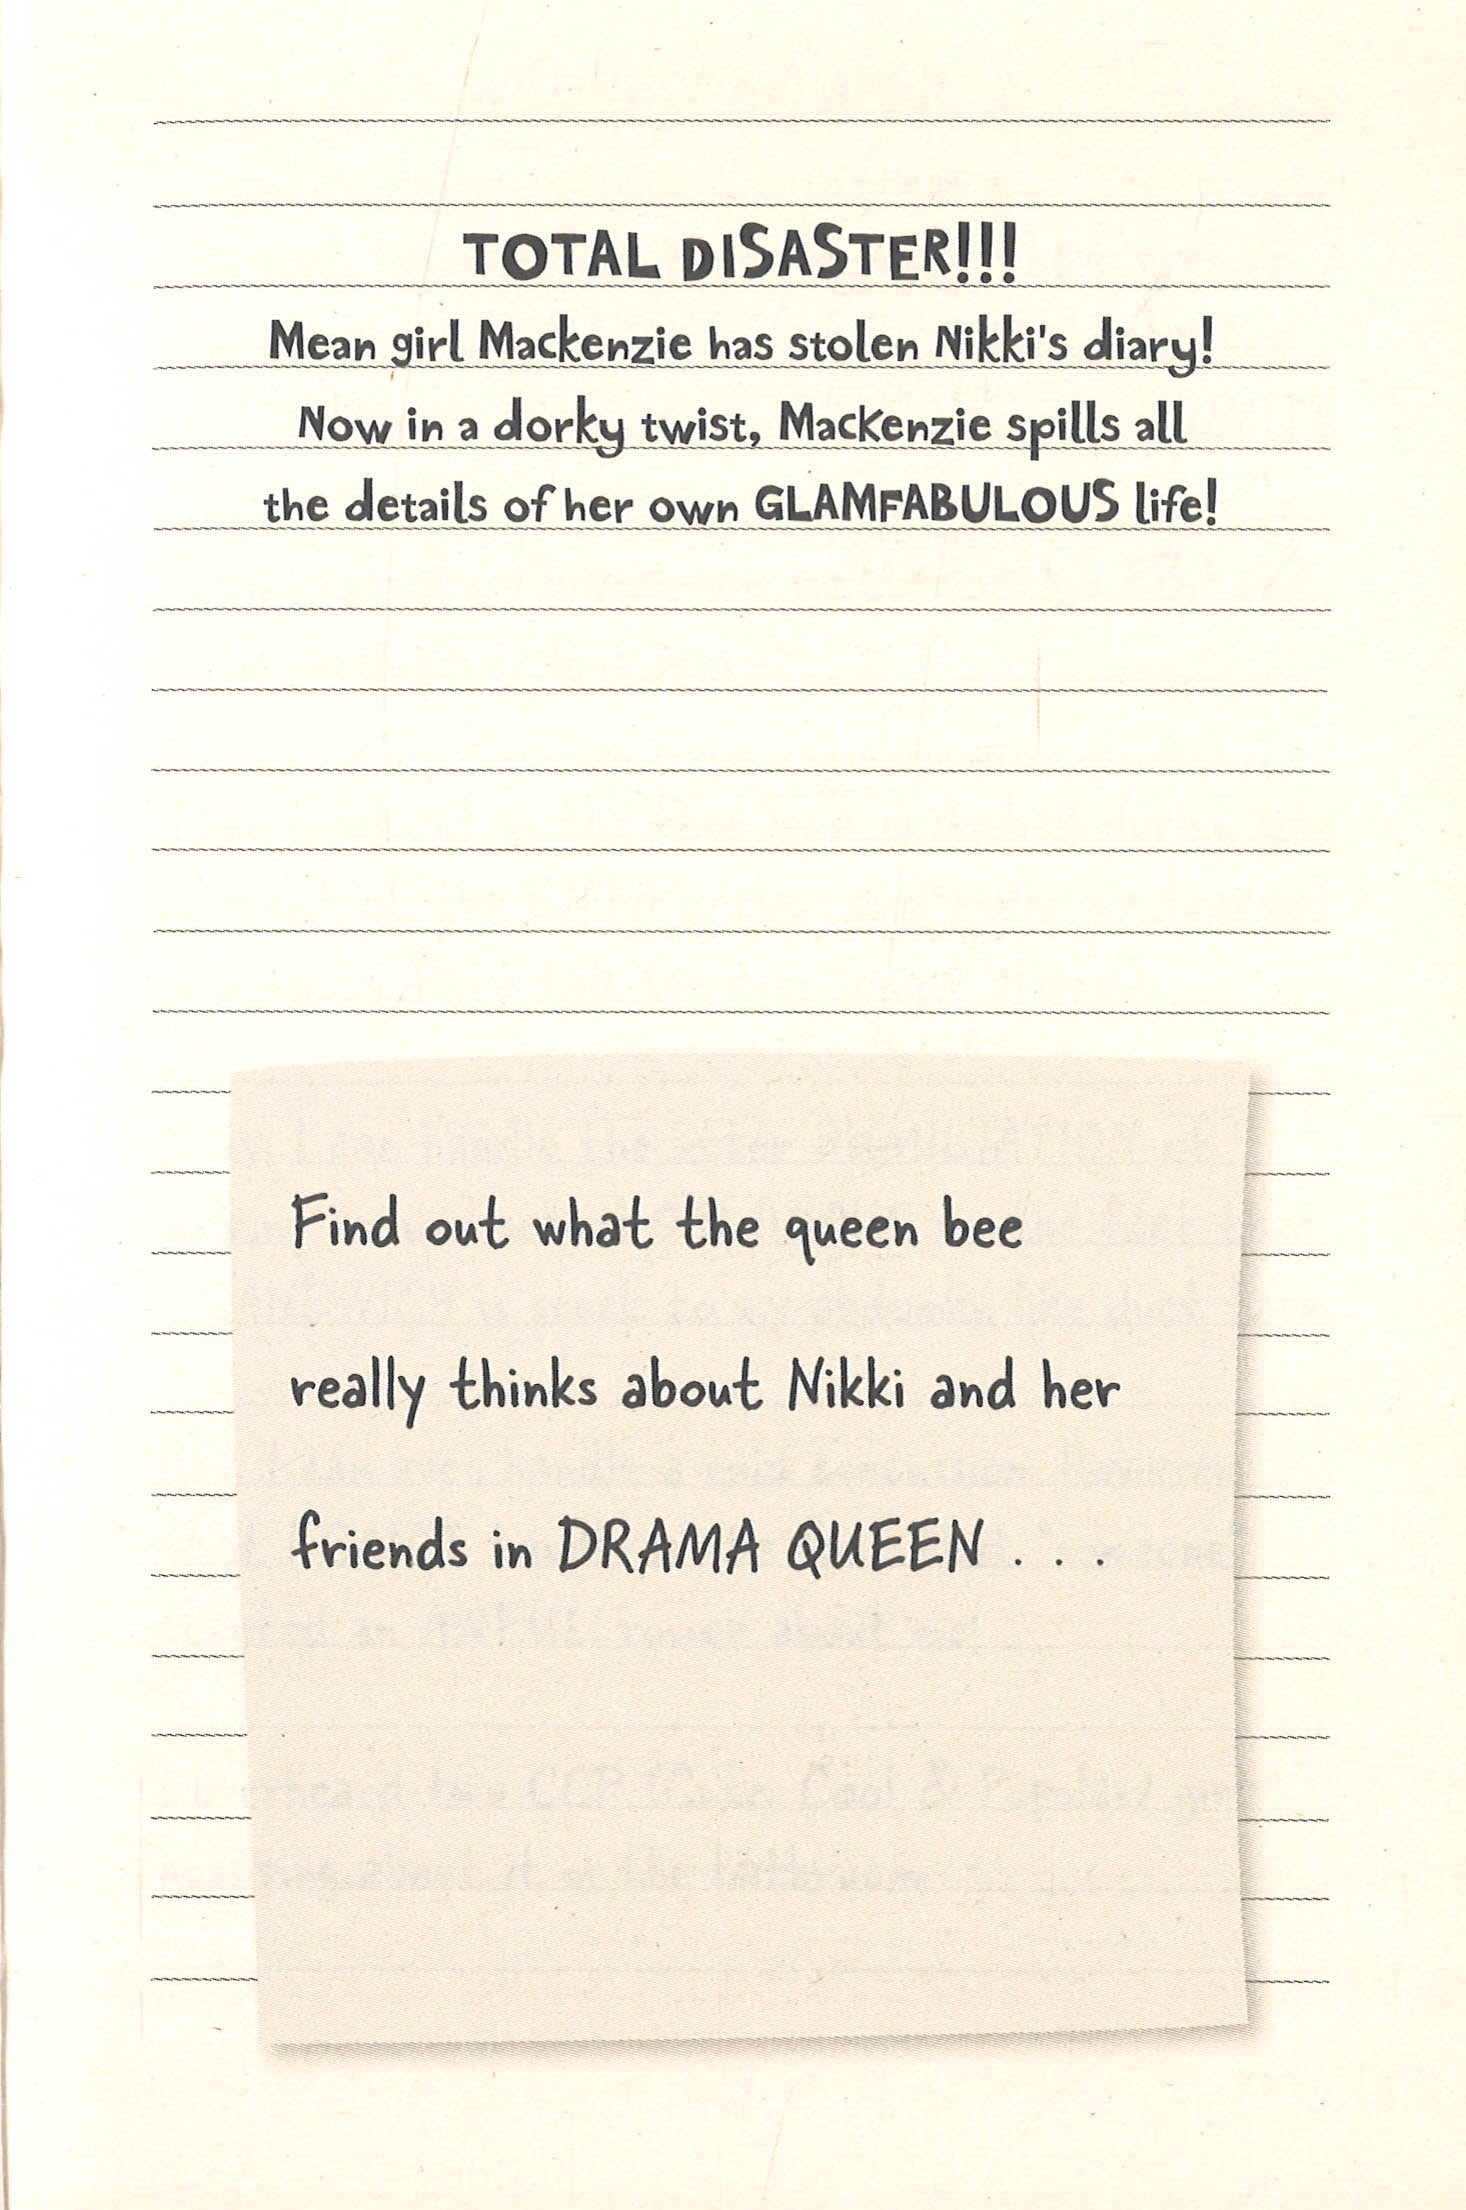 TOTAL DISASTER!!!
Mean girl Mackenzie has stolen Nikki's diary!
Now in a dorky twist, Mackenzie spills all
the details of her own GLAMFABULOUS life!
Find out what the queen bee
really thinks about Nikki and her
friends in DRAMA QUEEN . . .